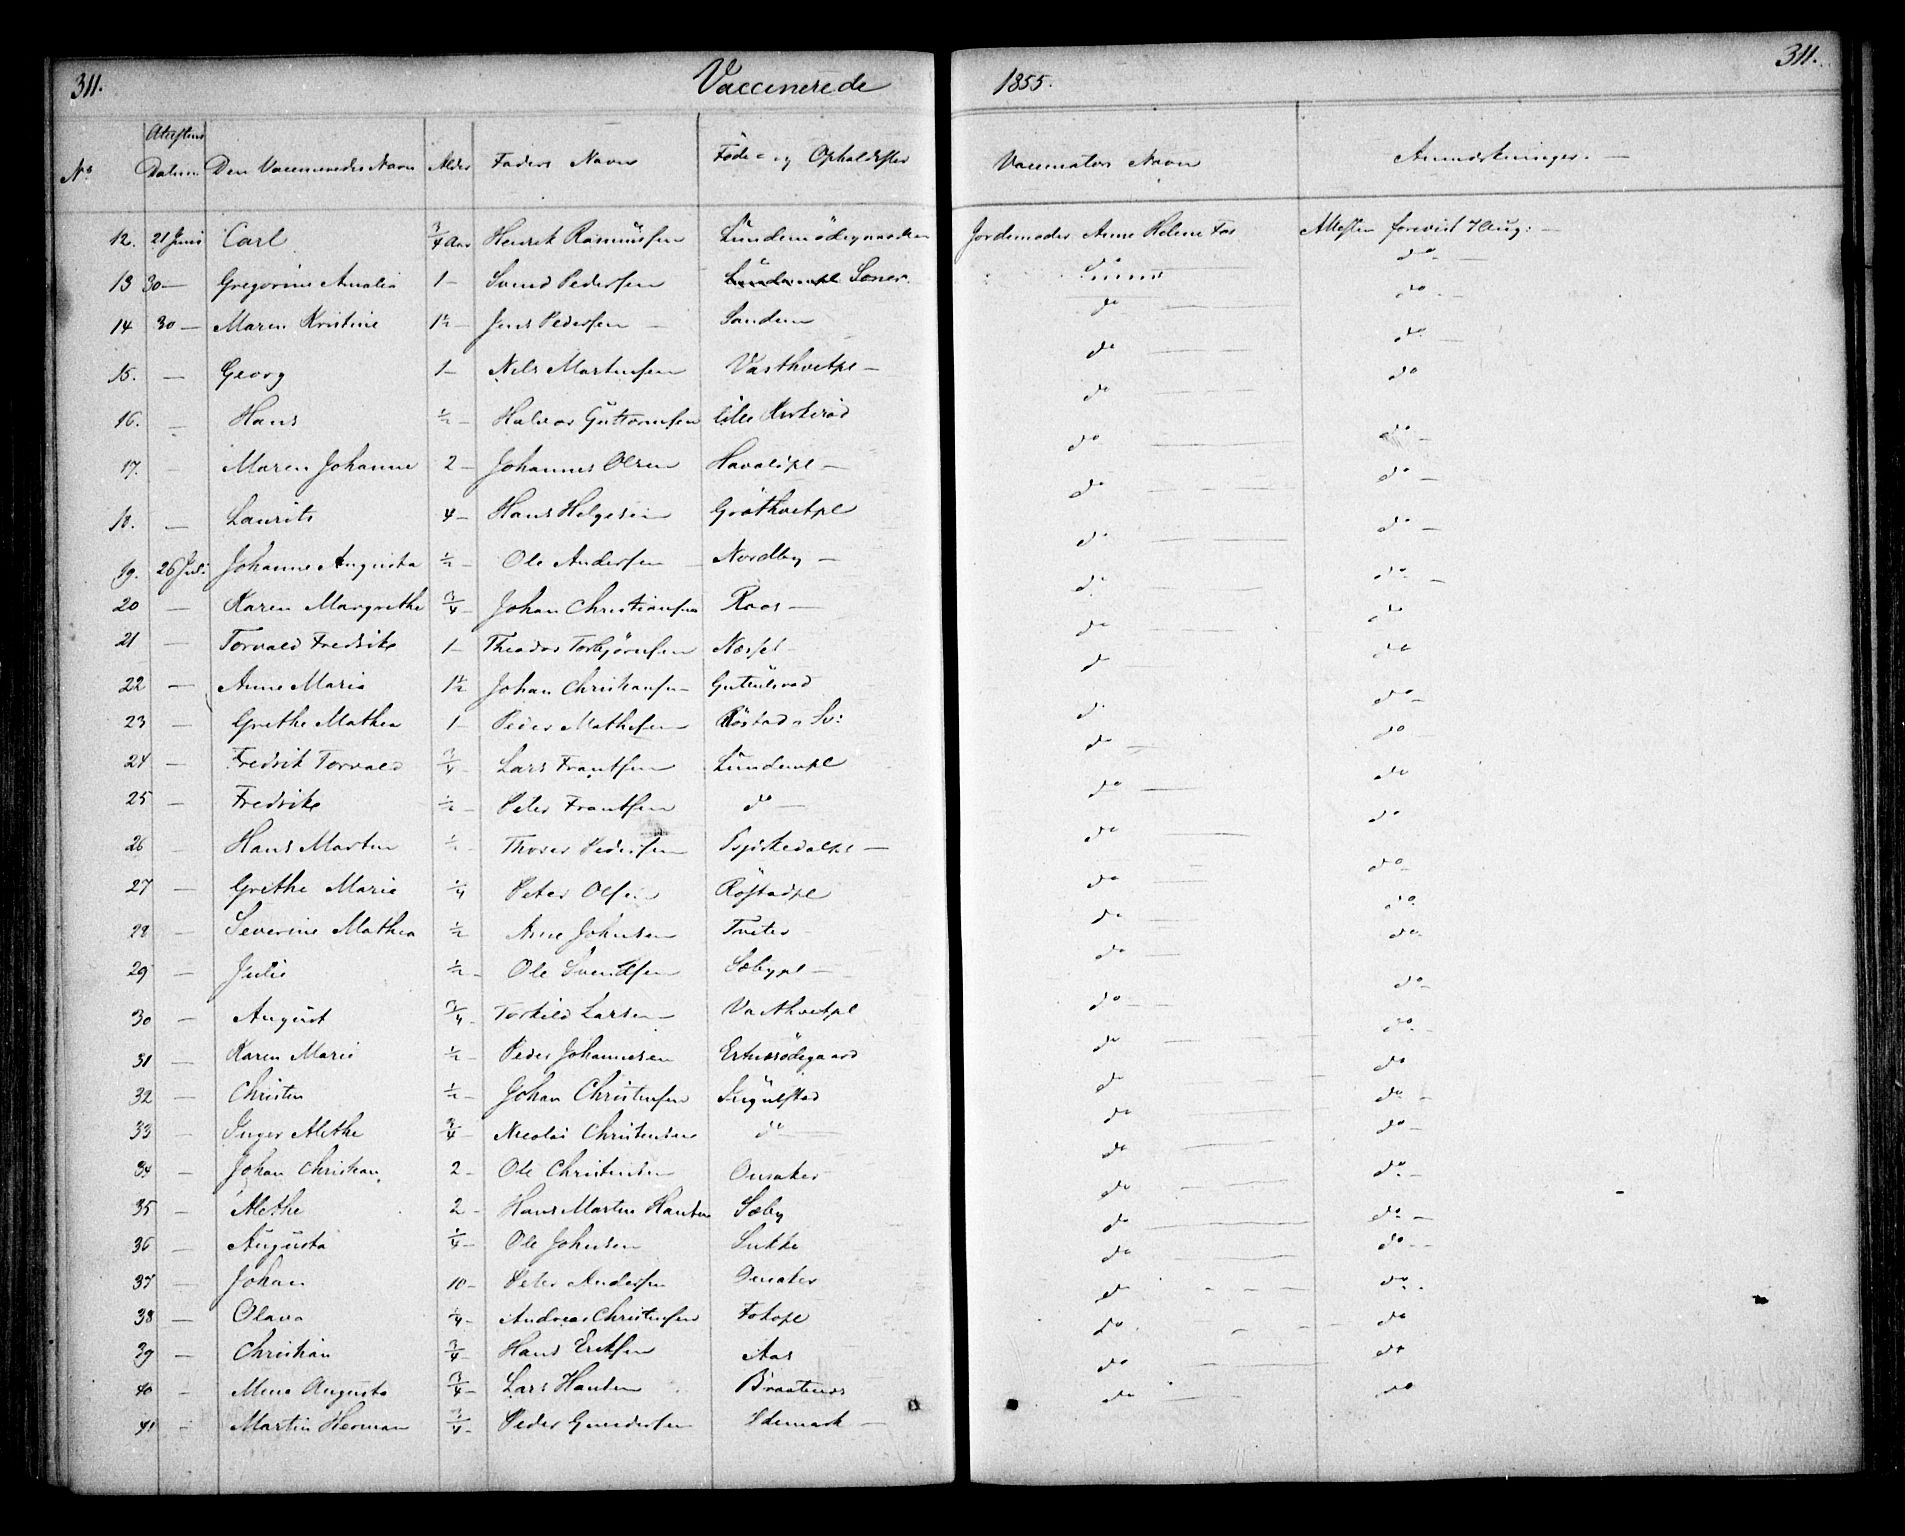 311. Vaccinerede 1855. 311.
No Attestens Datum Den Vaccineredes Navn Alder Faders Navn Føde- og Opholdssted Vaccinators Navn Anmærkninger.
12. 21 Juni Carl 3/4 Aar Henrik Rasmussen Jordemoder Anne Helene Fos Attesten forevist 7 Aug: —
13 30 — Gregorine Amalia 1 — Svend Pedersen Soner do —
14 30 — Maren Kristine 1 1/2 — Jens Pedersen — Sanden do do —
15. — Georg 1 — Nils Martinsen Vasthvetpl — do do —
16. — Hans 1/2 — Halvor Guttormsen lille Kirkerød do do
17. — Maren Johanne 2 — Johannes Olsen Havalspl — do do —
18. — Laurits 4 — Hans Helgesen Grøthvetpl do do —
19. 26 Juli Johanne Augusta 1/2 — Ole Andersen — Nordby — do do —
20 — Karen Margrethe 3/4 Johan Christiansen Roos — do do —
21 — Torvald Fredrik 1 — Theodor Torbjørnsen Næsset — do do
22 — Anne Maria 1 1/2 Johan Christiansen do do
23 — Grethe Mathea 1 — Peder Mathesen Røstad do do —
24 — Fredrik Torvald 3/4 Lars Frantsen Lundenpl do do —
25 — Fredrik 1/2 — Peter Frantsen do — do do
26 Hans Martin 1/2 — Thorer Pedersen do do
27 — Grethe Marie 1/4 Peter Olsen Røstadpl do do —
28 — Severine Mathea 1/2 Arne Johnsen Tveter do do
29 — Julie 1/2 — Ole Svendsen Sæbypl — do do
30 — August 3/4 — Torkild Larsen — Vasthvetpl do do —
31 — Karen Marie 1/2 — Peder Johannesen do do —
32 — Christen 1/2 — Johan Christensen Ingulstad do do
33 — Inger Alethe 3/4 — Nicolai Christensen do — do do —
34 — Johan Christian 2 — Ole Christensen Onsaker do do —
35 — Alethe 2 — Hans Martin Hansen Sæby do do —
36 — Augusta 1/4 — Ole Johnsen Sukke do do —
37 — Johan 10 — Peter Andersen Onsaker do do —
38 — Olava 1/4 — Andreas Christensen Fokopl do do
39 — Christian 3/4 — Hans Eriksen Aas do do
40 — Mina Augusta 3/4 — Lars Hansen Braatenes do do
41 — Martin Herman 3/4 — Peder Gundersen Idemark — do do